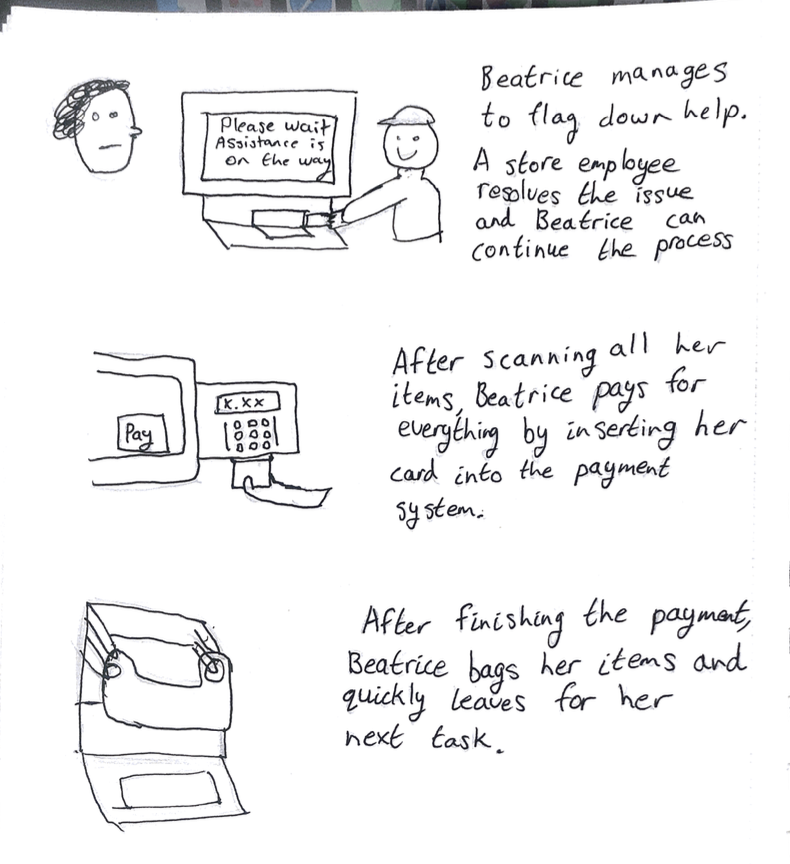 Please wait
Assistance is
on the way
Beatrice manages
to flag down help.
A store employee
resolves the issue
and Beatrice can
continue the process
Pay
x.xx
After scanning all her
items, Beatrice pays for
everything by inserting her
card into the payment
system.
After finishing the payment,
Beatrice bags her items and
quickly leaves for her
next task.